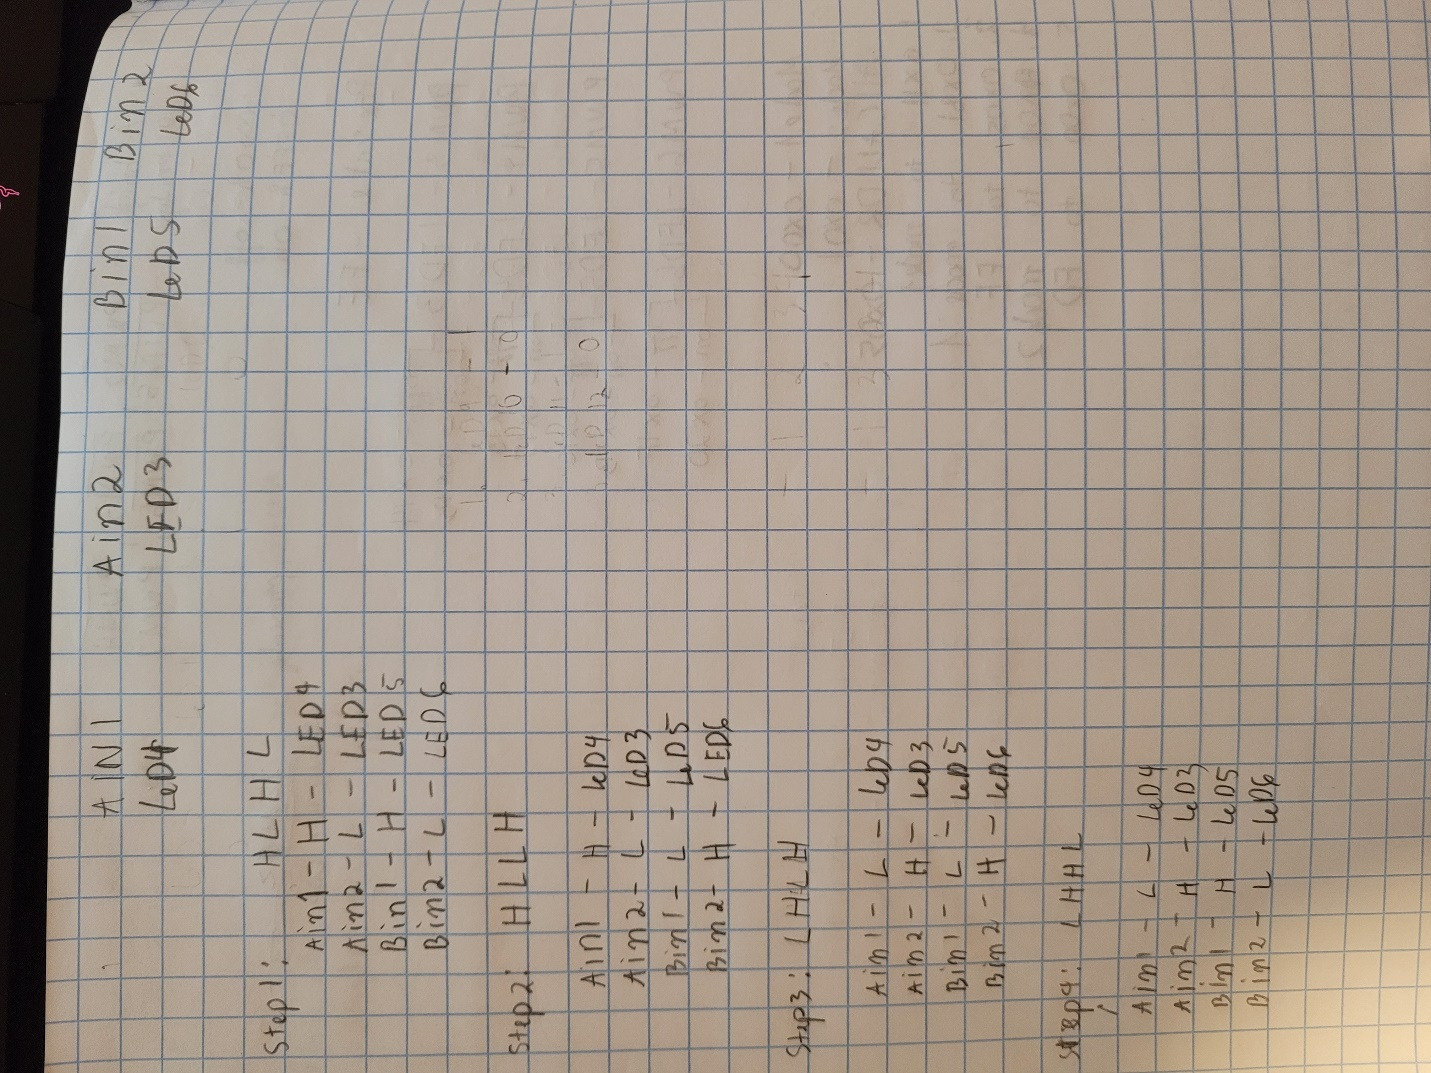 AIN1 Ain2 Bin1 Bin2
LeD4 LED3 LeD5 LeD6
Step1: HLHL
Ain1 - H - LED4
Ain2 - L - LED3
Bin1 - H - LED5
Bin2 - L - LED6
Step2: HLLH
Ain1 - H - LeD4
Ain2 - L - LeD3
Bin1 - L - LeD5
Bin2 - H - LED6
Step3: LHLH
Ain1 - L - LeD4
Ain2 - H - LeD3
Bin1 - L - LeD5
Bin2 - H - LeD6
Step4: LHHL
Ain1 - L - LeD4
Ain2 - H - LeD3
Bin1 - H - LeD5
Bin2 - L - LeD6